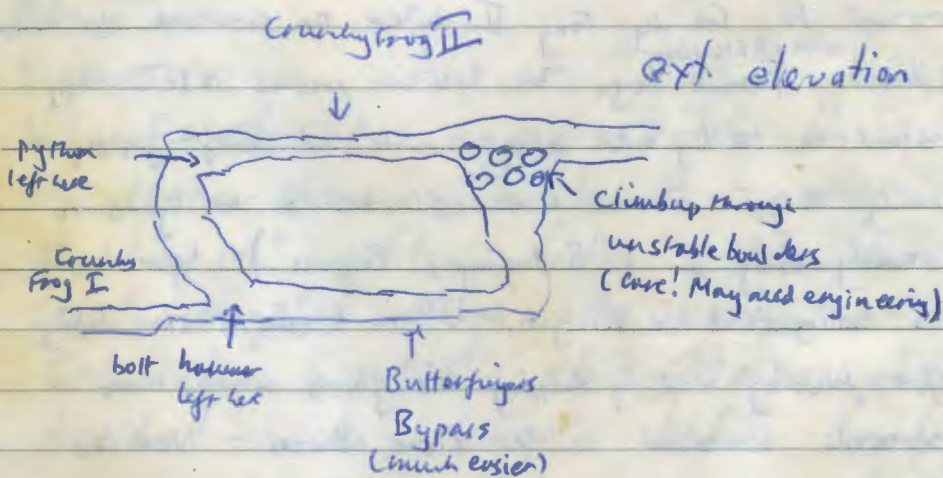 Crunchy Frog II
ext. elevation
python
left here
Crunchy
Frog I
Climb up through
unstable boulders
(care! May need engineering)
bolt hammer
left here
Butterfingers
Bypass
(much easier)